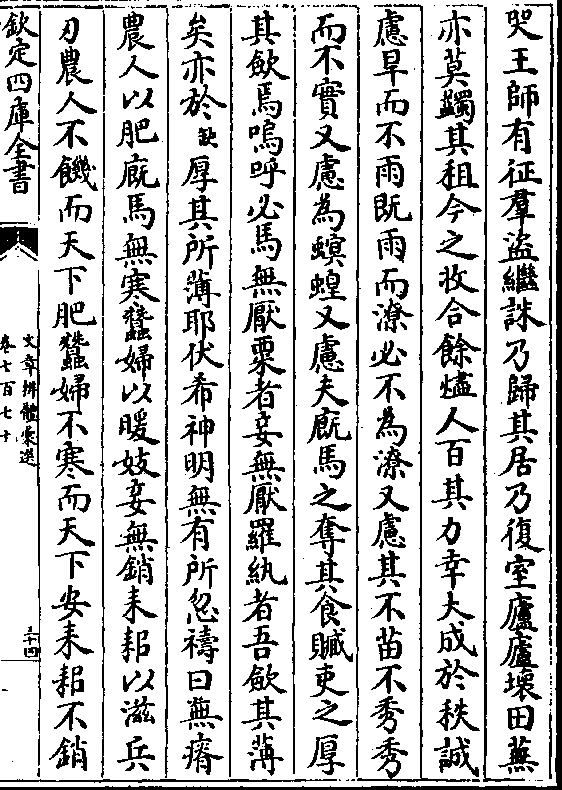 哭王師有征羣盜繼誅乃歸其居乃復室廬廬壞田蕪
亦莫蠲其租今之收合餘燼人百其力幸大成於秩誠
慮旱而不雨既雨而潦必不為潦又慮其不苗不秀秀
而不實又慮為螟蝗又慮夫廐馬之奪其食贓吏之厚
其斂焉嗚呼必馬無厭粟者妾無厭羅紈者吾斂其薄
矣亦於缺厚其所薄耶伏希神明無有所忽禱曰無瘠
農人以肥廐馬無寒蠶婦以暖妓妾無銷耒耜以滋兵
刃農人不饑而天下肥蠶婦不寒而天下安耒耜不銷
欽定四庫全書
文章辨體彙選
卷七百七十
三十四